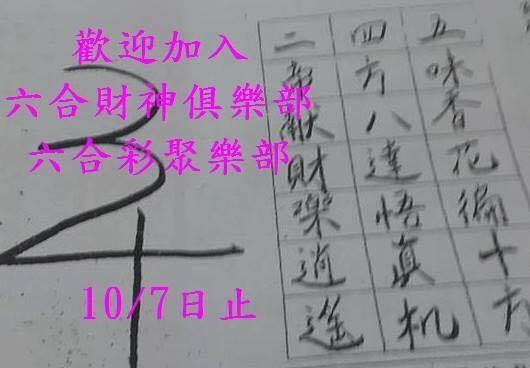 歡迎加入
六合財神俱樂部
六合彩聚樂部
10/7日止
五味香花十六
四方八達悟真机
二獻財樂逍遙